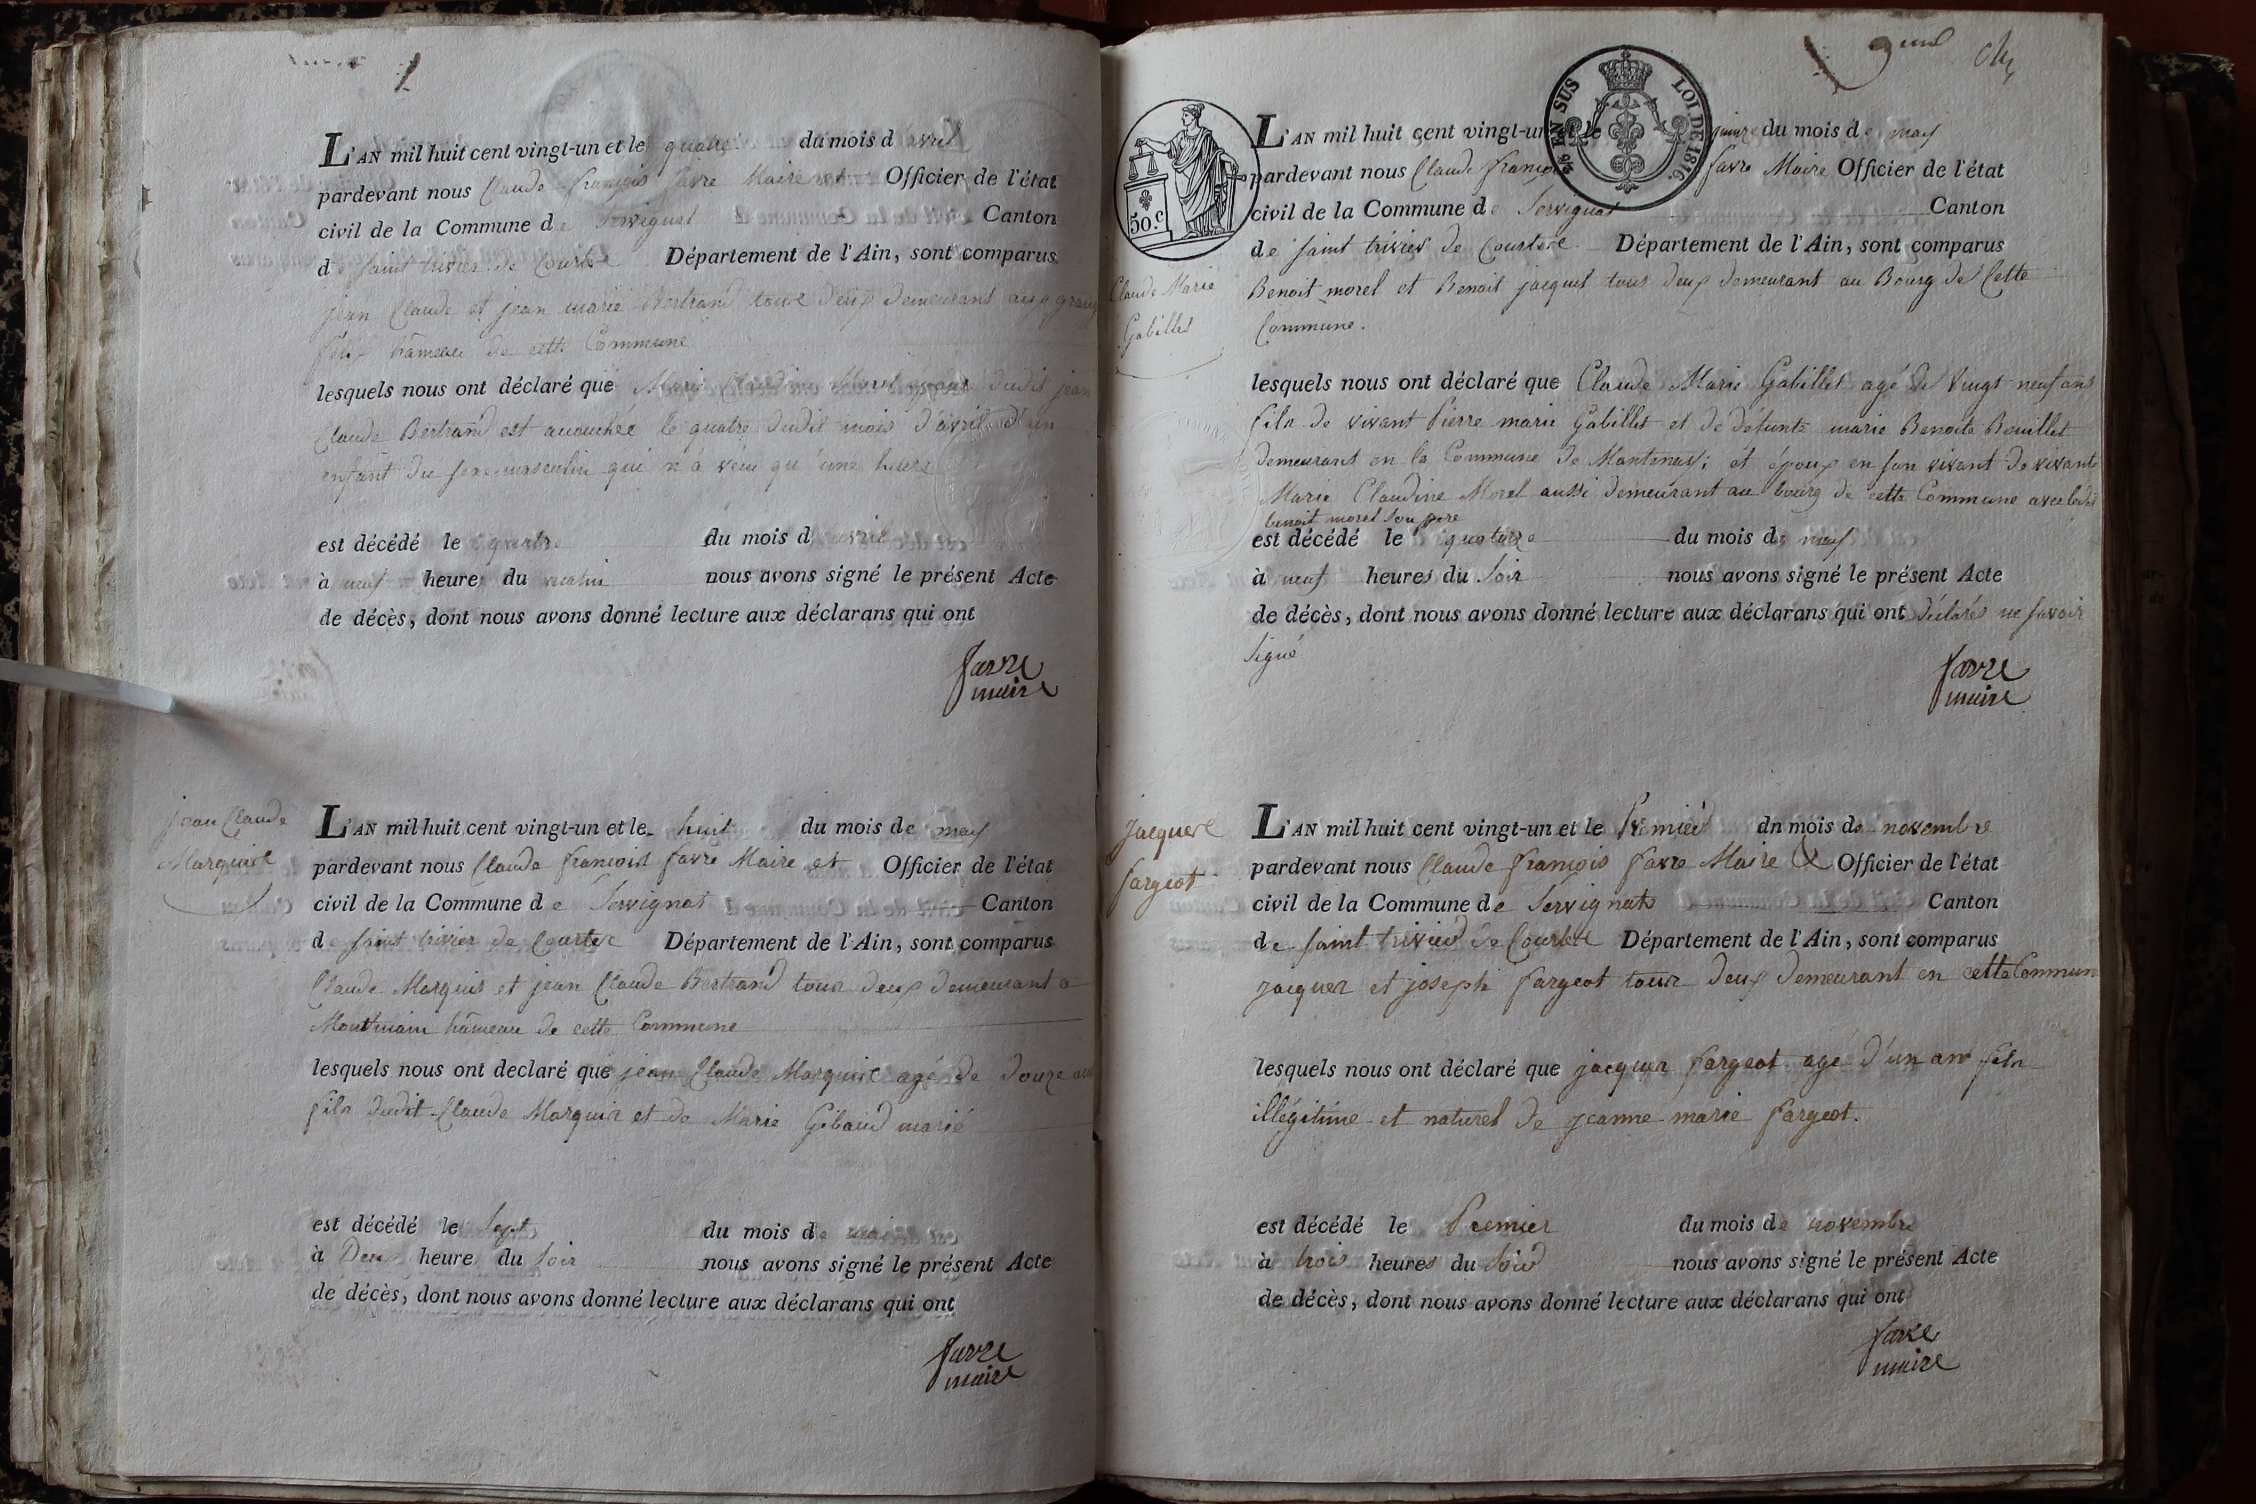 L'AN mil huit cent vingt-un et le quatre du mois d avril
pardevant nous Claude françois favre Maire et Officier de l'état
civil de la Commune de Servignat Canton
de saint trivier de Courtes Département de l'Ain, sont comparus
jean Claude et jean marie Bertrand tous deux demeurant aux grand
hâmeau de cette Commune
lesquels nous ont déclaré que Marie Claudine Morel épouse dudit jean
Claude Bertrand est accouchée le quatre dudit mois d'avril d'un
enfant du sexe masculin qui n'a vécu qu'une heure
est décédé le quatre du mois d avril
à neuf heure du matin nous avons signé le présent Acte
de décès, dont nous avons donné lecture aux déclarans qui ont
favre
maire
jean Claude
Marquis
L'AN mil huit cent vingt-un et le huit du mois de may
pardevant nous Claude françois favre Maire et Officier de l'état
civil de la Commune de Servignat Canton
de saint trivier de Courtes Département de l'Ain, sont comparus
Claude Marquis et jean Claude Bertrand tous deux demeurant a
Montmain hâmeau de cette Commune
lesquels nous ont declaré que jean Claude Marquis agé de douze ans
fils dudit Claude Marquis et de Marie Gibaud marié
est décédé le Sept du mois de mai
à Deux heure du Soir nous avons signé le présent Acte
de décès, dont nous avons donné lecture aux déclarans qui ont
favre
maire
50.c
EN SUS LOI DE 1816.
L'AN mil huit cent vingt-un et le quinze du mois de may
pardevant nous Claude françois favre Maire Officier de l'état
civil de la Commune de Servignat Canton
de saint trivier de Courtes Département de l'Ain, sont comparus
Claude Marie
Gabillet
Benoit morel et Benoit jacquet tous deux demeurant au Bourg de Cette
Commune.
lesquels nous ont déclaré que Claude Marie Gabillet agé de vingt neuf ans
fils de vivant Pierre marie Gabillet et de défunte marie Benoite Bouillet
demeurant en la Commune de Mantenay; et époux en son vivant de vivante
Marie Claudine Morel aussi demeurant au bourg de cette Commune avec ledit
benoit morel son pere
est décédé le quatorze du mois de may
à neuf heures du Soir nous avons signé le présent Acte
de décès, dont nous avons donné lecture aux déclarans qui ont déclarés ne savoir
signé
favre
maire
Jacques
fargeot
L'AN mil huit cent vingt-un et le Premier dn mois de novembre
pardevant nous Claude françois favre Maire & Officier de l'état
civil de la Commune de Servignat Canton
de saint trivier de Courtes Département de l'Ain, sont comparus
jacques et joseph fargeot tous deux demeurant en cette Commune
lesquels nous ont déclaré que jacques fargeot agé d'un an fils
illégitime et naturel de jeanne marie fargeot.
est décédé le Premier du mois de novembre
à trois heures du Soir nous avons signé le présent Acte
de décès, dont nous avons donné lecture aux déclarans qui ont
favre
maire